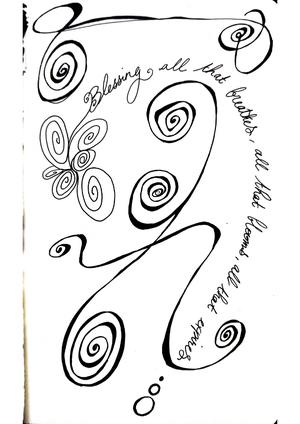 Blessing, all that breathes, all that blooms, all that expires